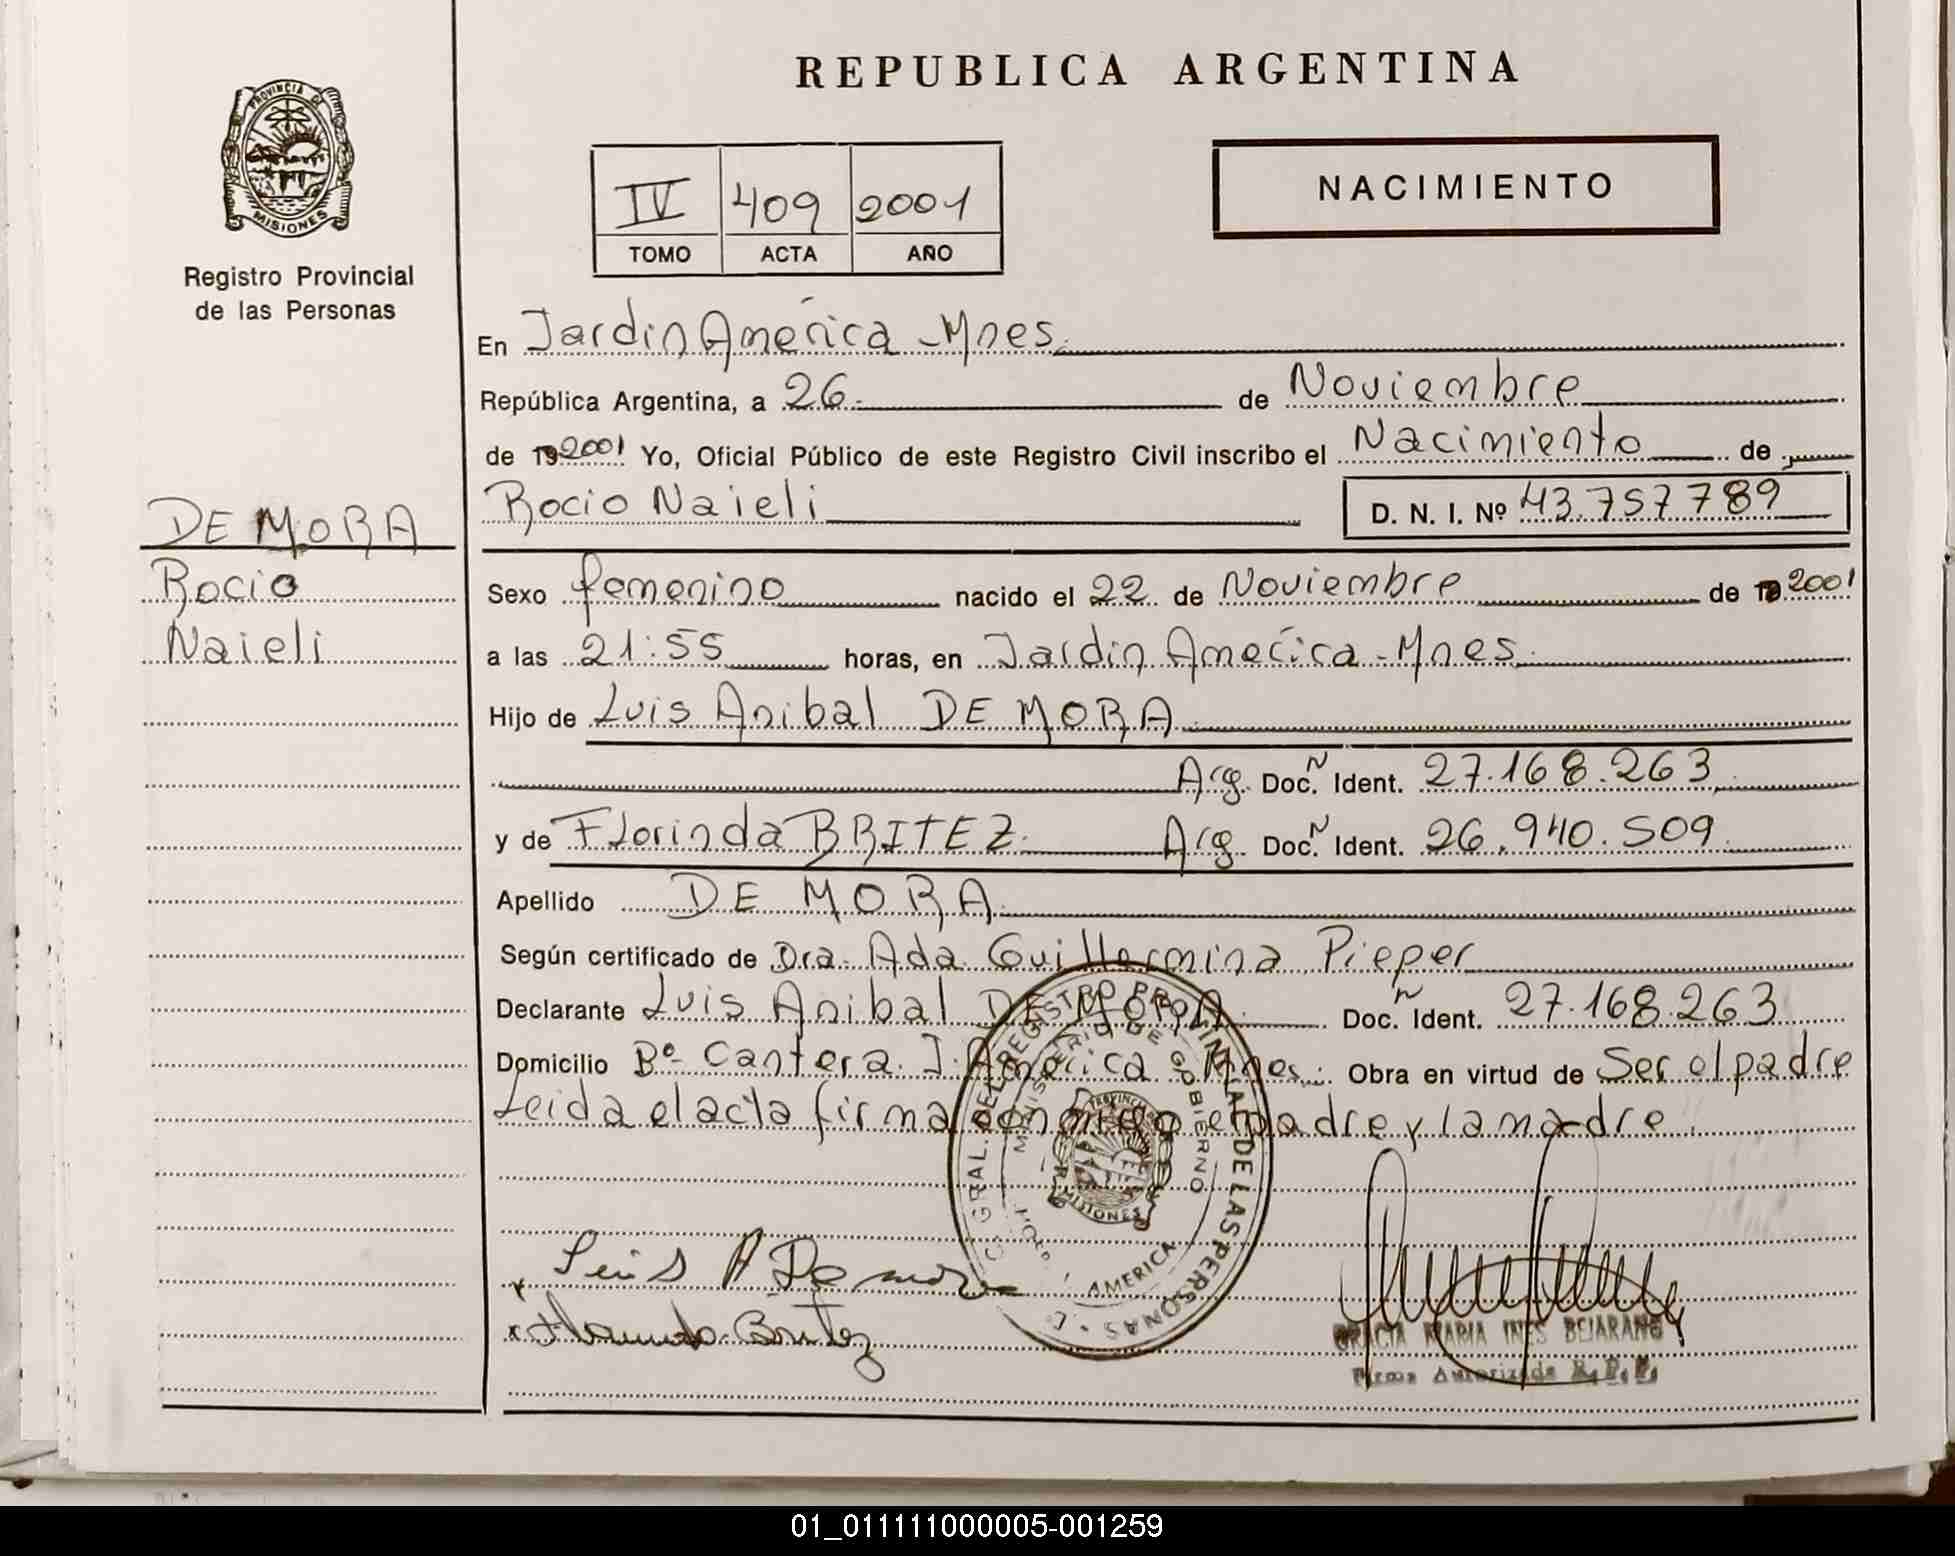 REPUBLICA ARGENTINA
PROVINCIA DE
MISIONES
Registro Provincial
de las Personas
IV 409 2001
TOMO ACTA AÑO
NACIMIENTO
En Jardin América - Mnes.
República Argentina, a 26 de Noviembre
de 19 2001 Yo, Oficial Público de este Registro Civil inscribo el Nacimiento de
Rocio Naieli D. N. I. Nº 43.757789
DE MORA
Rocio
Naieli
Sexo femenino nacido el 22 de Noviembre de 2001
a las 21:55 horas, en Jardin América - Mnes.
Hijo de Luis Anibal DE MORA
Arg. Doc. N Ident. 27.168.263
y de Florinda BRITEZ. Arg. Doc. N Ident. 26.940.509
Apellido DE MORA
Según certificado de Dra. Ada Guillermina Pieper
Declarante Luis Anibal DE MORA Doc. N Ident. 27.168.263
Domicilio Bº Cantera. J. América Mnes. Obra en virtud de Ser el padre
Leida el acta firman conmigo el padre y la madre.
GRAL. DEL REGISTRO PROVINCIAL DE LAS PERSONAS
MINISTERIO DE GOBIERNO
PROVINCIA DE
MISIONES
AMERICA
Luis A De mora
Britez
GRACIA MARIA INES BEJARANO
Firma Autorizada R. P. P.
01_011111000005-001259